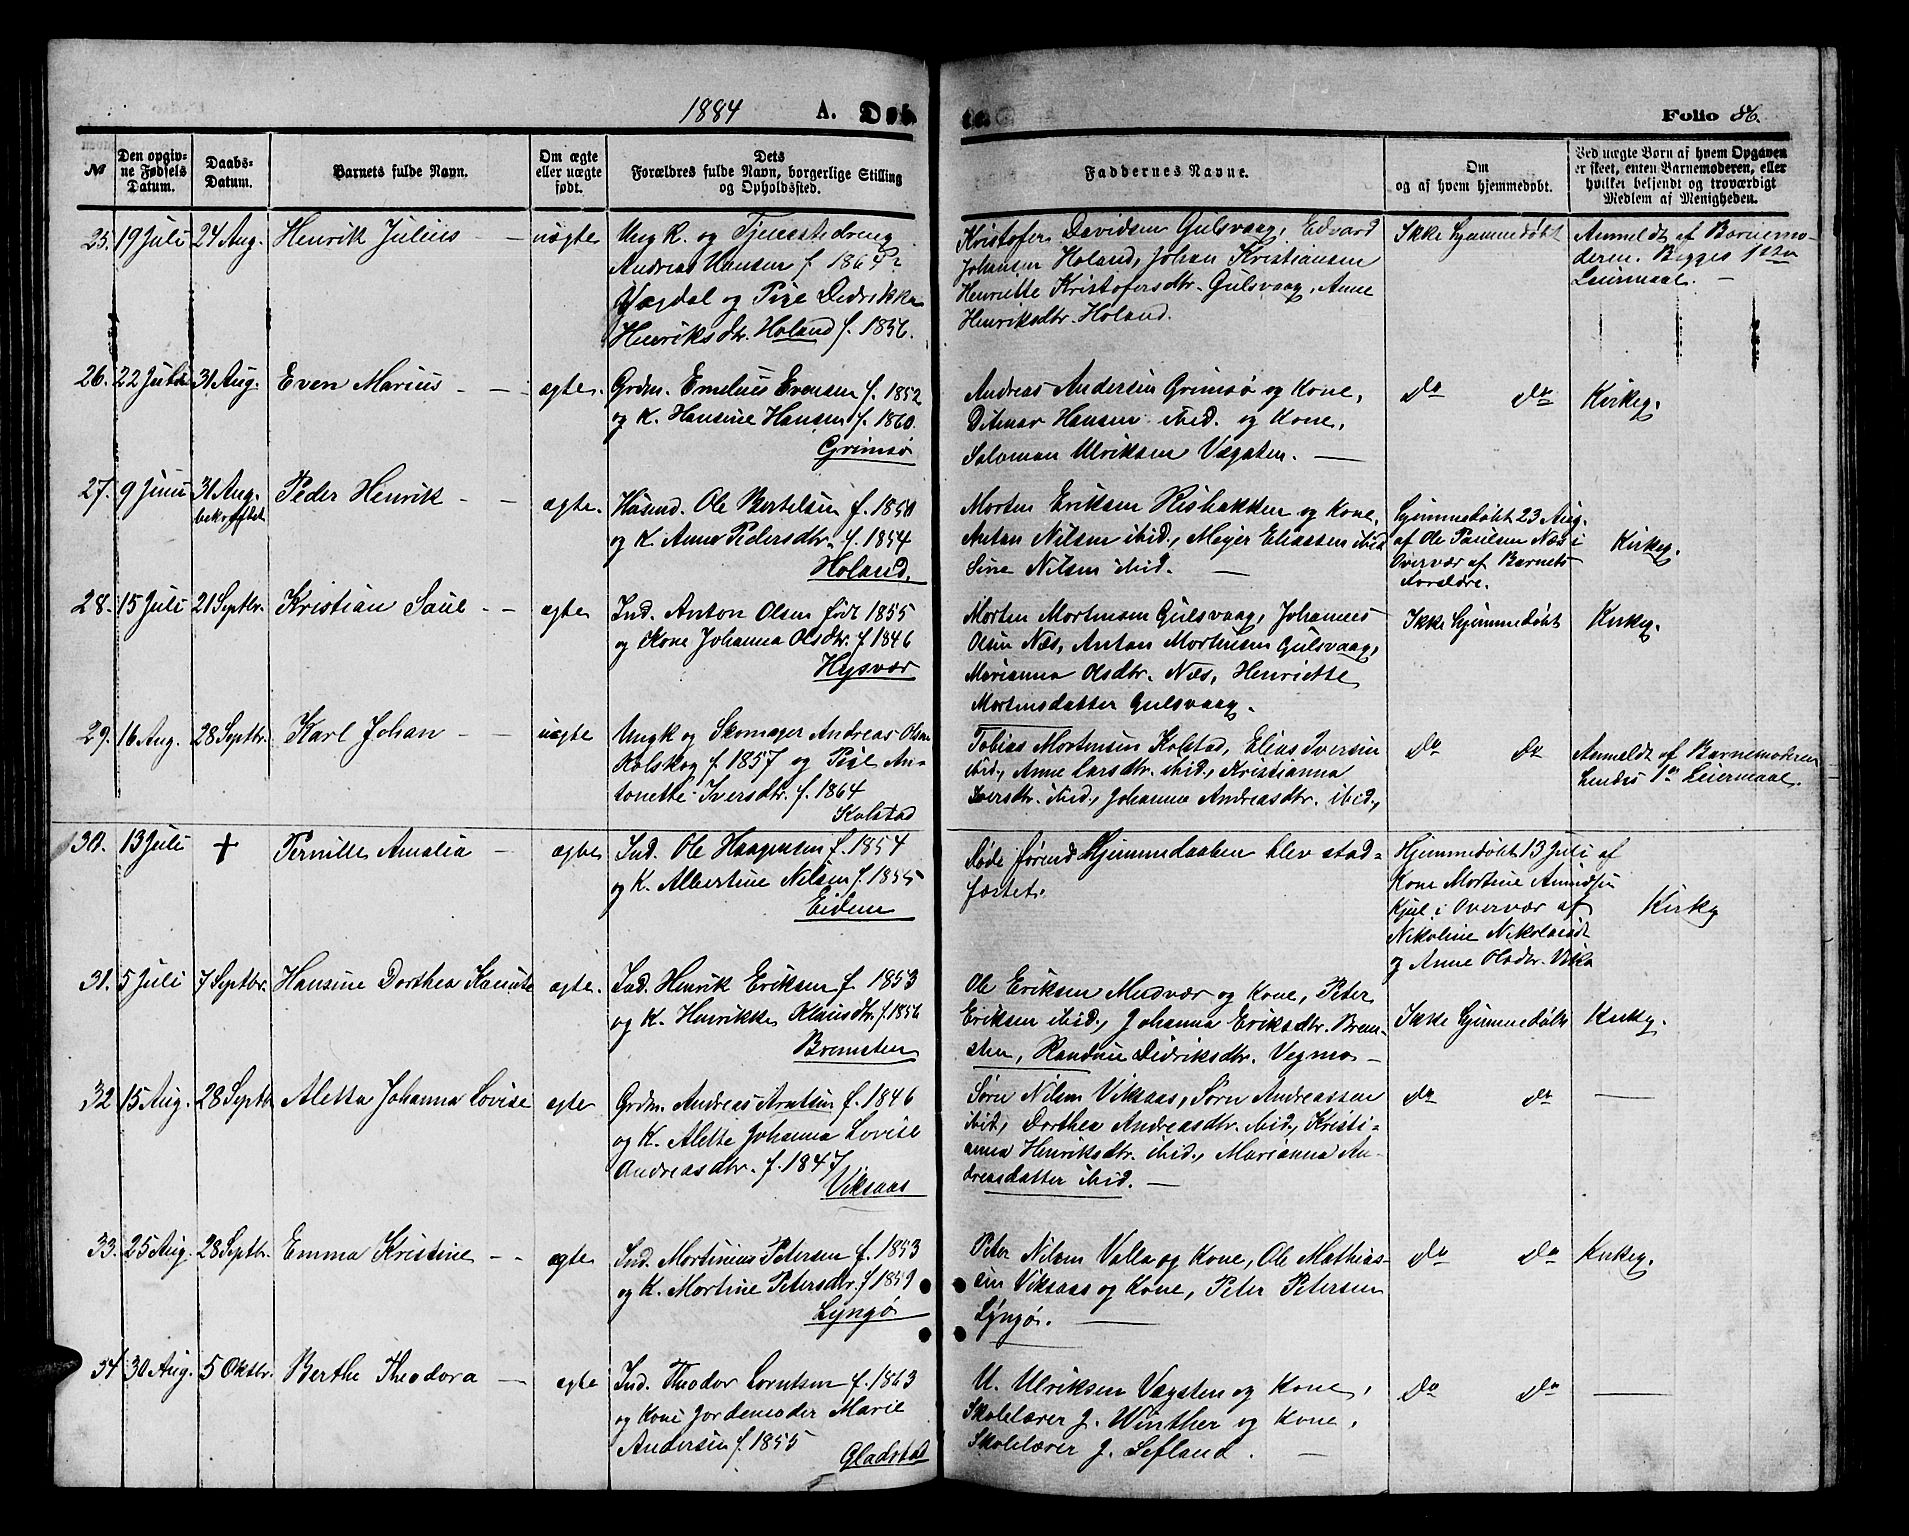 1884 A. Døb te. Folio 86.
№
Den opgivne Fødsels Datum.
Daabs-Datum.
Barnets fulde Navn.
Om ægte eller uægte født.
Dets Forældres fulde Navn, borgerlige Stilling og Opholdssted.
Faddernes Navne.
Om og af hvem hjemmedøbt.
Ved uægte Børn af hvem Opgaven er skeet, enten Barnemoderen, eller hvilket bekjendt og troværdigt Medlem af Menigheden.
25. 19 Juli 24 Aug. Henrik Julius - - uægte
Ungk. og Tjenestedreng
Andreas Hansen f. 1864?
Vægdal og Pige Didrikke
Henriksdtr. Holand f. 1856.
Kristofer Davidsen Gulsvaag, Edvard
Johansen Holand, Johan Kristiansen
Henriette Kristofersdtr. Gulsvaag, Anne
Henriksdtr. Holand.
Ikke hjemmedøbt
Anmeldt af Barnemo-
deren. Begges 1ste
Leiermaal. -
26. 22 Juli 31 Aug. Even Marius - - ægte.
Grdm. Emelius Evensen f. 1852
og K. Hansine Hansen f. 1860.
Grimsø
Andreas Andersen Grimsø og Kone,
Ditmar Hansen ibid. og Kone,
Salomon Ulriksen Vægsten. -
do do Kirkeg.
27. 9 Juni 31 Aug. bekræftet Peder Henrik - - ægte.
Husmd. Ole Bertelsen f. 1850
og K. Anna Pedersdtr. f. 1854
Holand.
Morten Eriksen Risbakken og Kone,
Antan Nilsen ibid., Meyer Eliassen ibid
Sine Nilsen ibid. -
Hjemmedøbt 23 Aug.
af Ole Paulsen Næs i
Overvær af Barnets
Forældre.
Kirkeg.
28. 15 Juli 21 Septbr. Kristian Saul - - ægte
Ind. Anton Olsen født 1855
og Kone Johanna Olsdtr. f. 1846
Hysvær
Morten Mortensen Gulsvaag, Johannes
Olsen Næs, Antan Mortensen Gulsvaag,
Marianna Olsdtr. Næs, Henriette
Mortensdatter Gulsvaag.
Ikke hjemmedøbt Kirkeg.
29. 16 Aug. 28 Septbr. Karl Johan - - uægte
Ungk og Skomager Andreas Olsen
Kolskog f. 1857 og Pige An-
tonette Iversdtr. f. 1864
Kolstad
Tobias Mortensen Kolstad, Elias Iversen
ibid., Anne Larsdtr. ibid., Kristianna
Iversdtr. ibid., Johanna Andreasdtr. ibid.,
do do
Anmeldt af Barnemoderen
Hendes 1ste Leiermaal.
30. 13 Juli † Pernille Amalia - ægte
Ind. Ole Haagensen f. 1854
og K. Albertine Nilsen f. 1855
Eidem
Døde førend Hjemmedaaben blev stad-
fæstet.
Hjemmedøbt 13 Juli af
Kone Mortine Amundsen
Kjul i Overvær af
Nikoline Nikolaisdt
og Anne Olsdtr. Vika
Kirkg
31. 5 Juli 7 Septbr. Hansine Dorthea Kamitte ægte.
Ind. Henrik Eriksen f. 1853
og K. Henrikke Klausdtr. f. 1856
Bremsten
Ole Eriksen Mudvær og Kone, Peter
Eriksen ibid., Johanna Eriksdtr. Brem-
sten, Randine Didriksdtr. Vegmo -
Ikke hjemmedøbt Kirkg.
32 15 Aug. 28 Septbr Aletta Johanna Lovise ægte
Grdm. Andreas Arntsen f. 1846
og K. Alette Johanna Lovise
Andreasdtr. f. 1847
Viksaas
Sørn Nilsen Viksaas, Sørn Andreassen
ibid., Dorthea Andreasdtr. ibid., Kristi-
anna Henriksdtr. ibid., Marianna An-
dreasdatter ibid. -
do do -
33. 25 Aug. 28 Septbr. Emma Kristine - - ægte
Ind. Mortinius Petersen f. 1853
og K. Mortine Petersdtr. f 1859
Lyngø
Peter Nilsen Valla og Kone, Ole Mathias-
sen Viksaas og Kone, Peter Petersen
Lyngø. -
do do Kirkeg.
34 30 Aug. 5 Oktbr. Berthe Theodora - ægte
Ind. Theodor Lorntsen f. 1863
og Kone Jordemoder Marie
Andersen f. 1855
Gladstad
U. Ulriksen Vægsten og Kone,
Skolelærer J. Winther og Kone,
Skolelærer J. Lefland. -
do do -